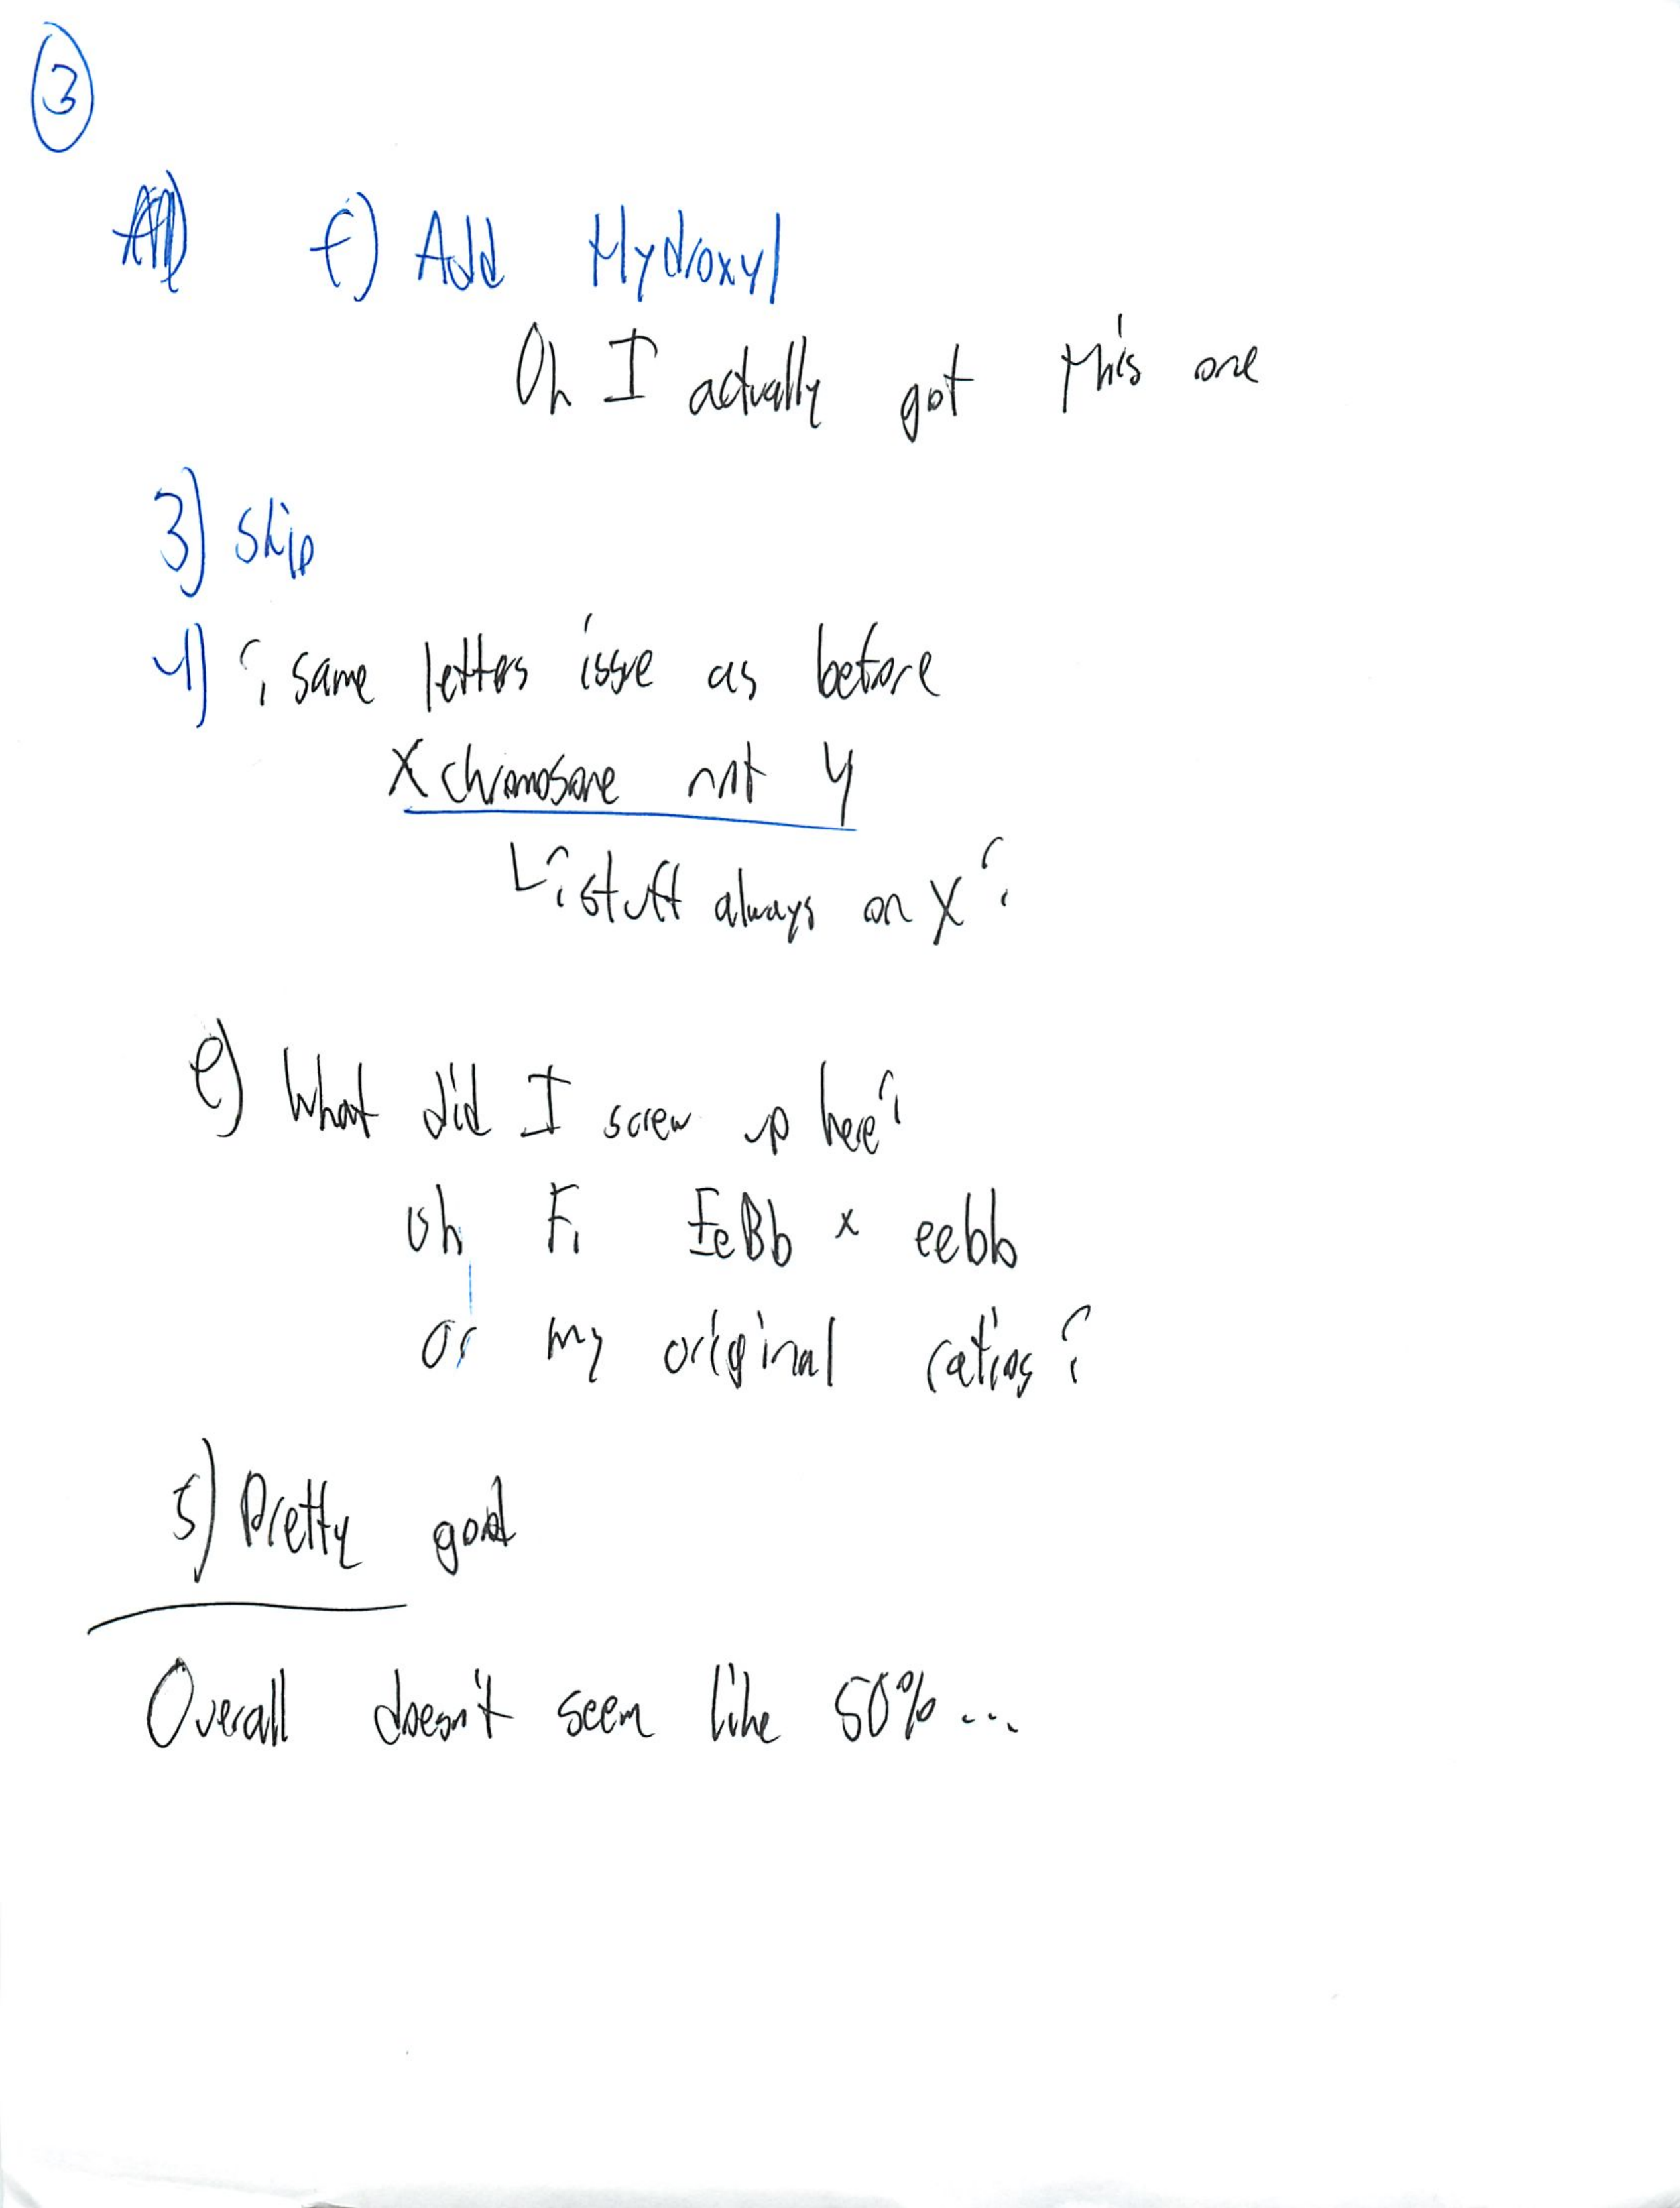 3
f) Add Hydroxyl
Oh I actually got this one
3) Skip
4) ¿ same letters issue as before
X chromosome not Y
L ¿ stuff always on X ?
e) What did I screw up here?
oh F1 EeBb x eebb
or my original ratios ?
5) Pretty good
Overall doesn't seem like 50% ...